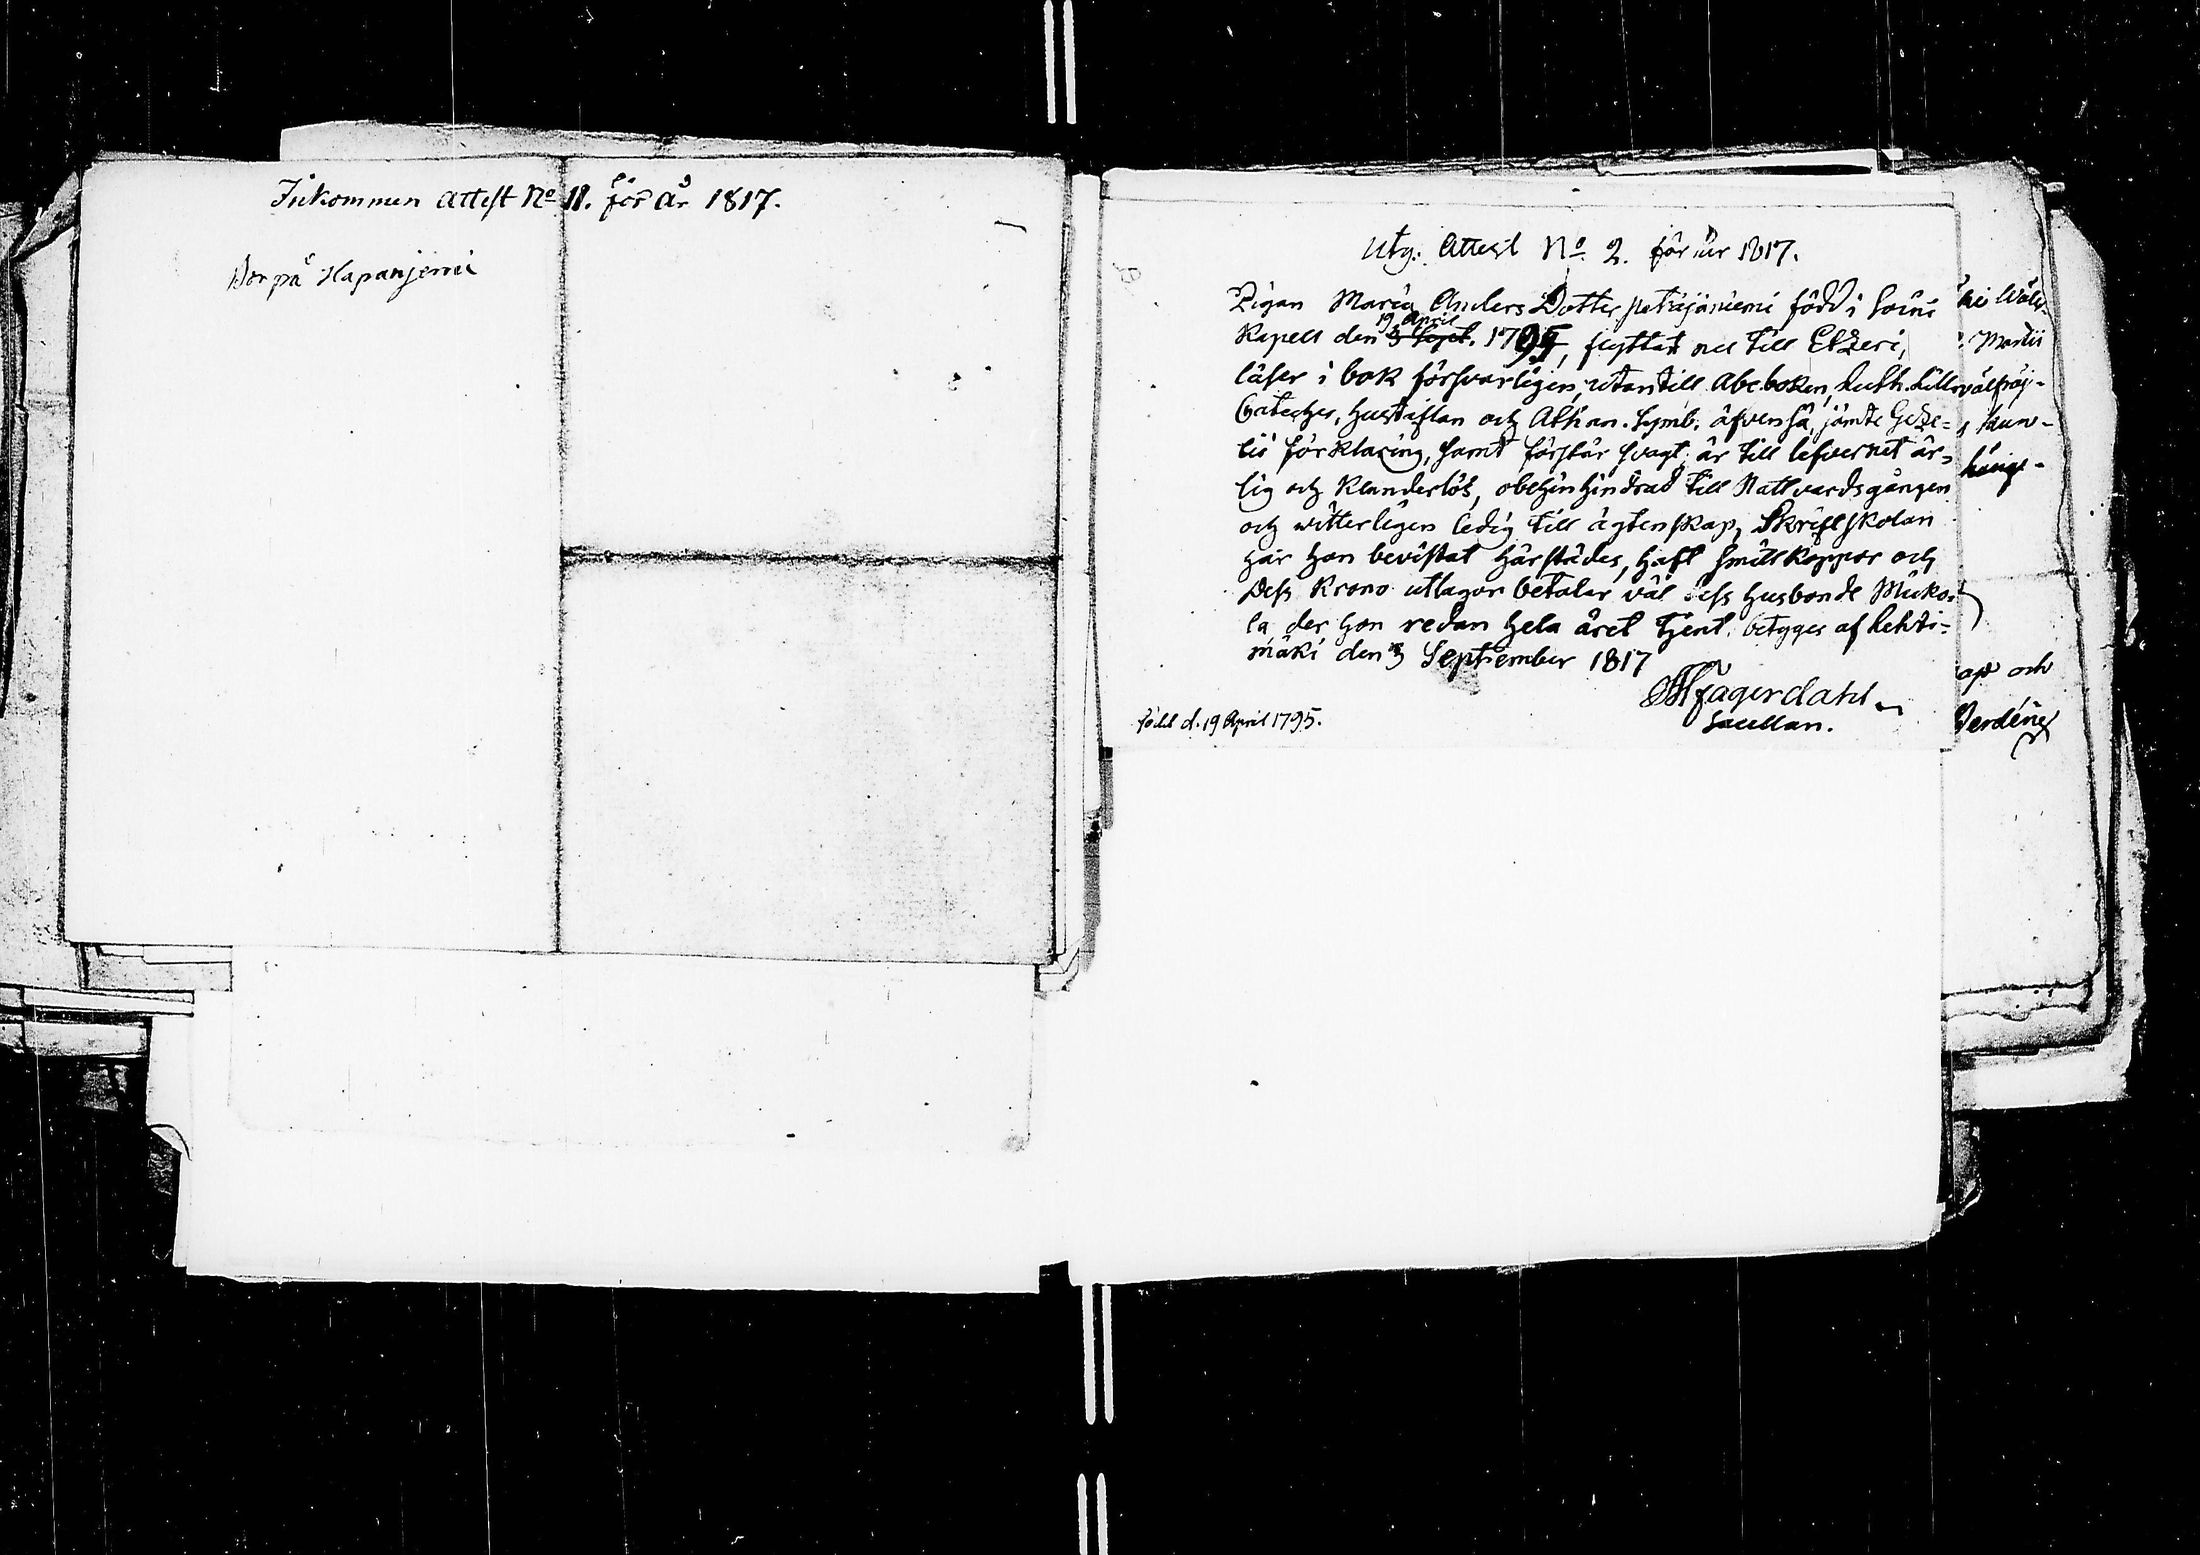 Inkommen Attest No 11. för år 1817.
Bor på Hapanjemi
Utg. Attest No 2. för år 1817.
Pigan Maria Anders Dotter peträjäniemi född i Soini
19 April
Kapell den 3 Sept. 1795, flyttat nu till Etzeri,
läser i bok försvarligen, utantill Abc boken, Luth. Lilla
Cateches, hustaflan och Athan. Symb. äfvenså, jämte Geze=
lii förklaring, samt förstår svagt, är till lefvernet är=
lig och klanderlös, obehindrad till Nattvardsgången
och witterligen ledig till ägtenskap, Skriftskolan
har hon bevistat härstädes, haft Småttkoppor och
Dess Krono utlagor betalar väl dess husbonde Mücko=
la der hon redan hela året tjent, betyges af Lehti=
mäki den 3 September 1817
Fagerdahl
Sacellan.
född d. 19 April 1795.
Martii
hänge-
och